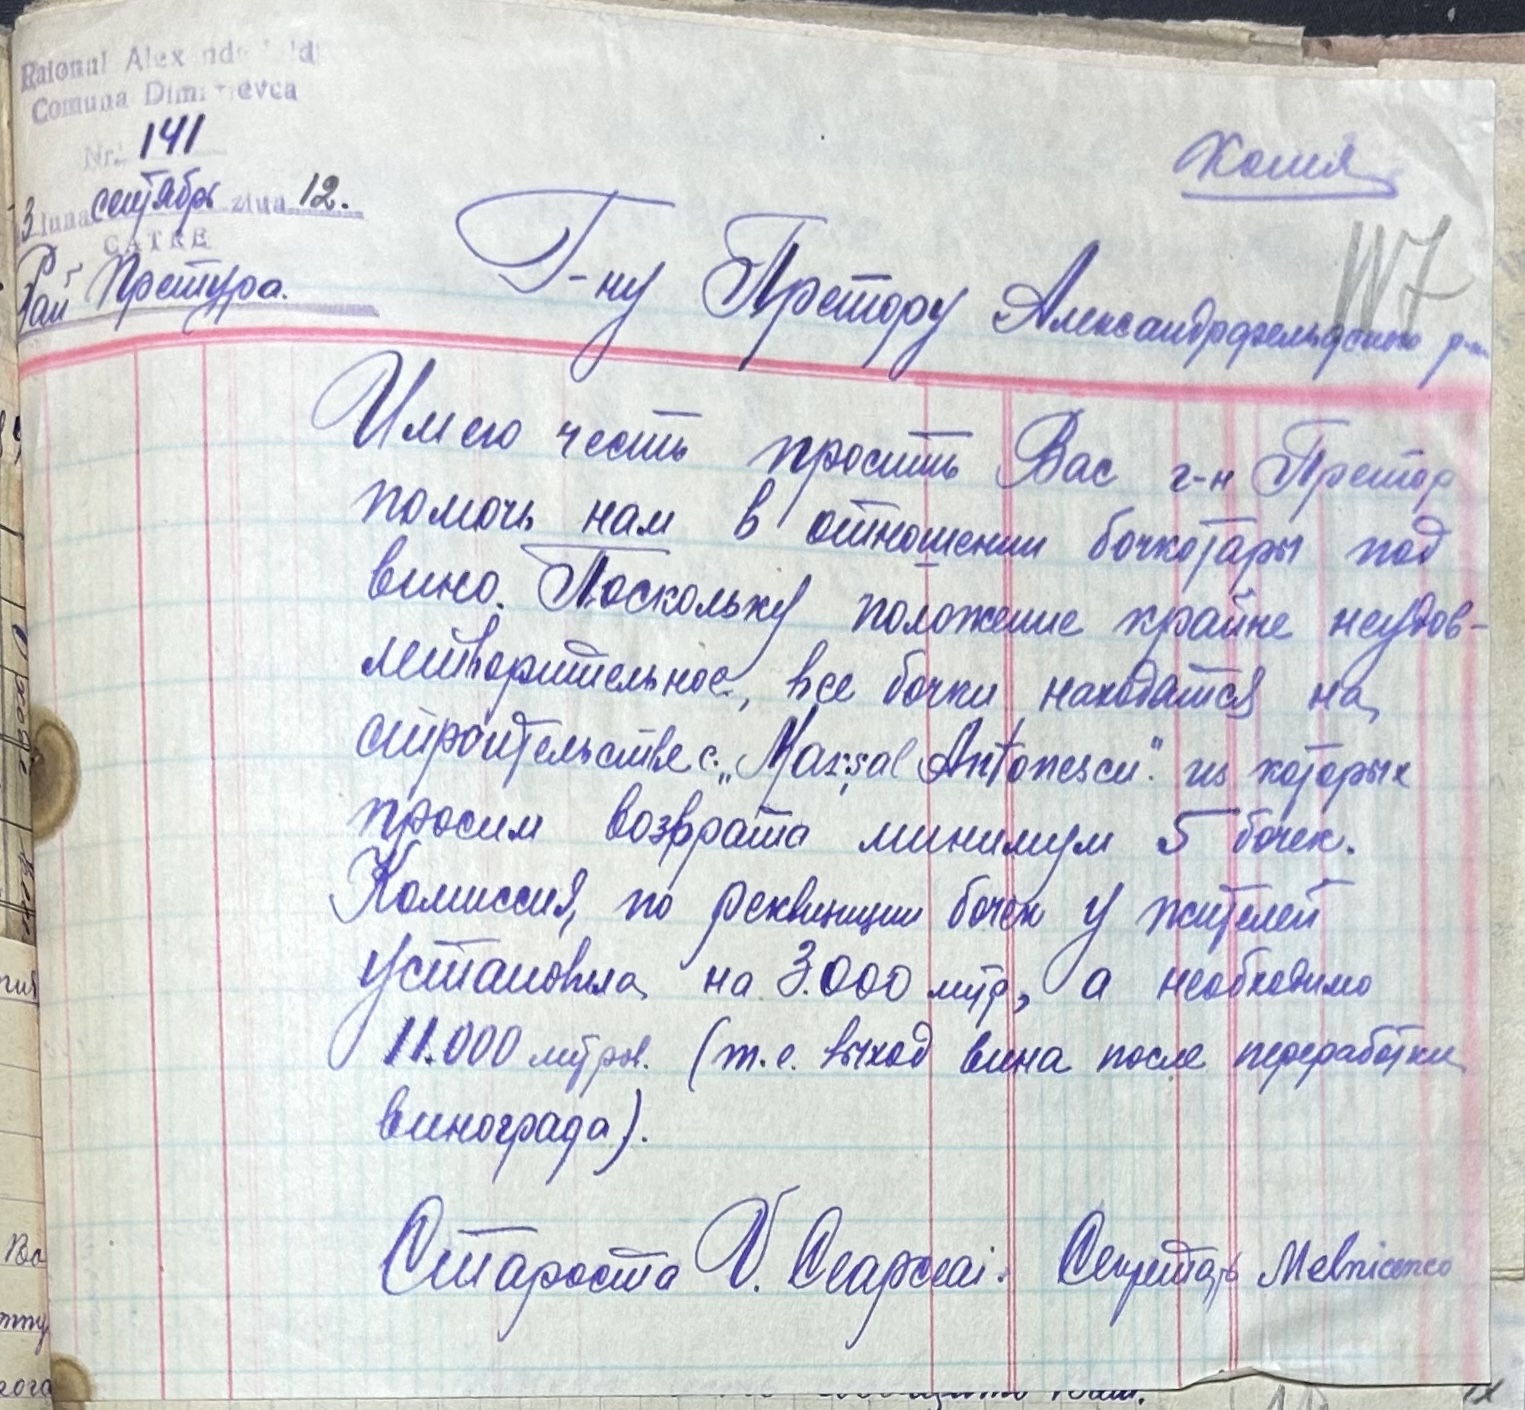 Raionul Alexandrfeld
Comuna Dimitrievca
Nr. 141
3 luna сентябрь ziua 12.
CATRE
Рай Претура.
Копия
117
Г-ну Претору Александрфельдского р-на
Имею честь просить Вас г-н Претор
помочь нам в отношении бочкотары под
вино. Поскольку положение крайне неудов-
летворительное, все бочки находятся на
строительстве с. „Marșal Antonescu" из которых
просим возврата минимум 5 бочек.
Комиссия, по реквизиции бочек у жителей
установила на 3.000 литр, а необходимо
11.000 литров. (т.е. выход вина после переработки
винограда).
Староста V. Секретарь Melnicenco